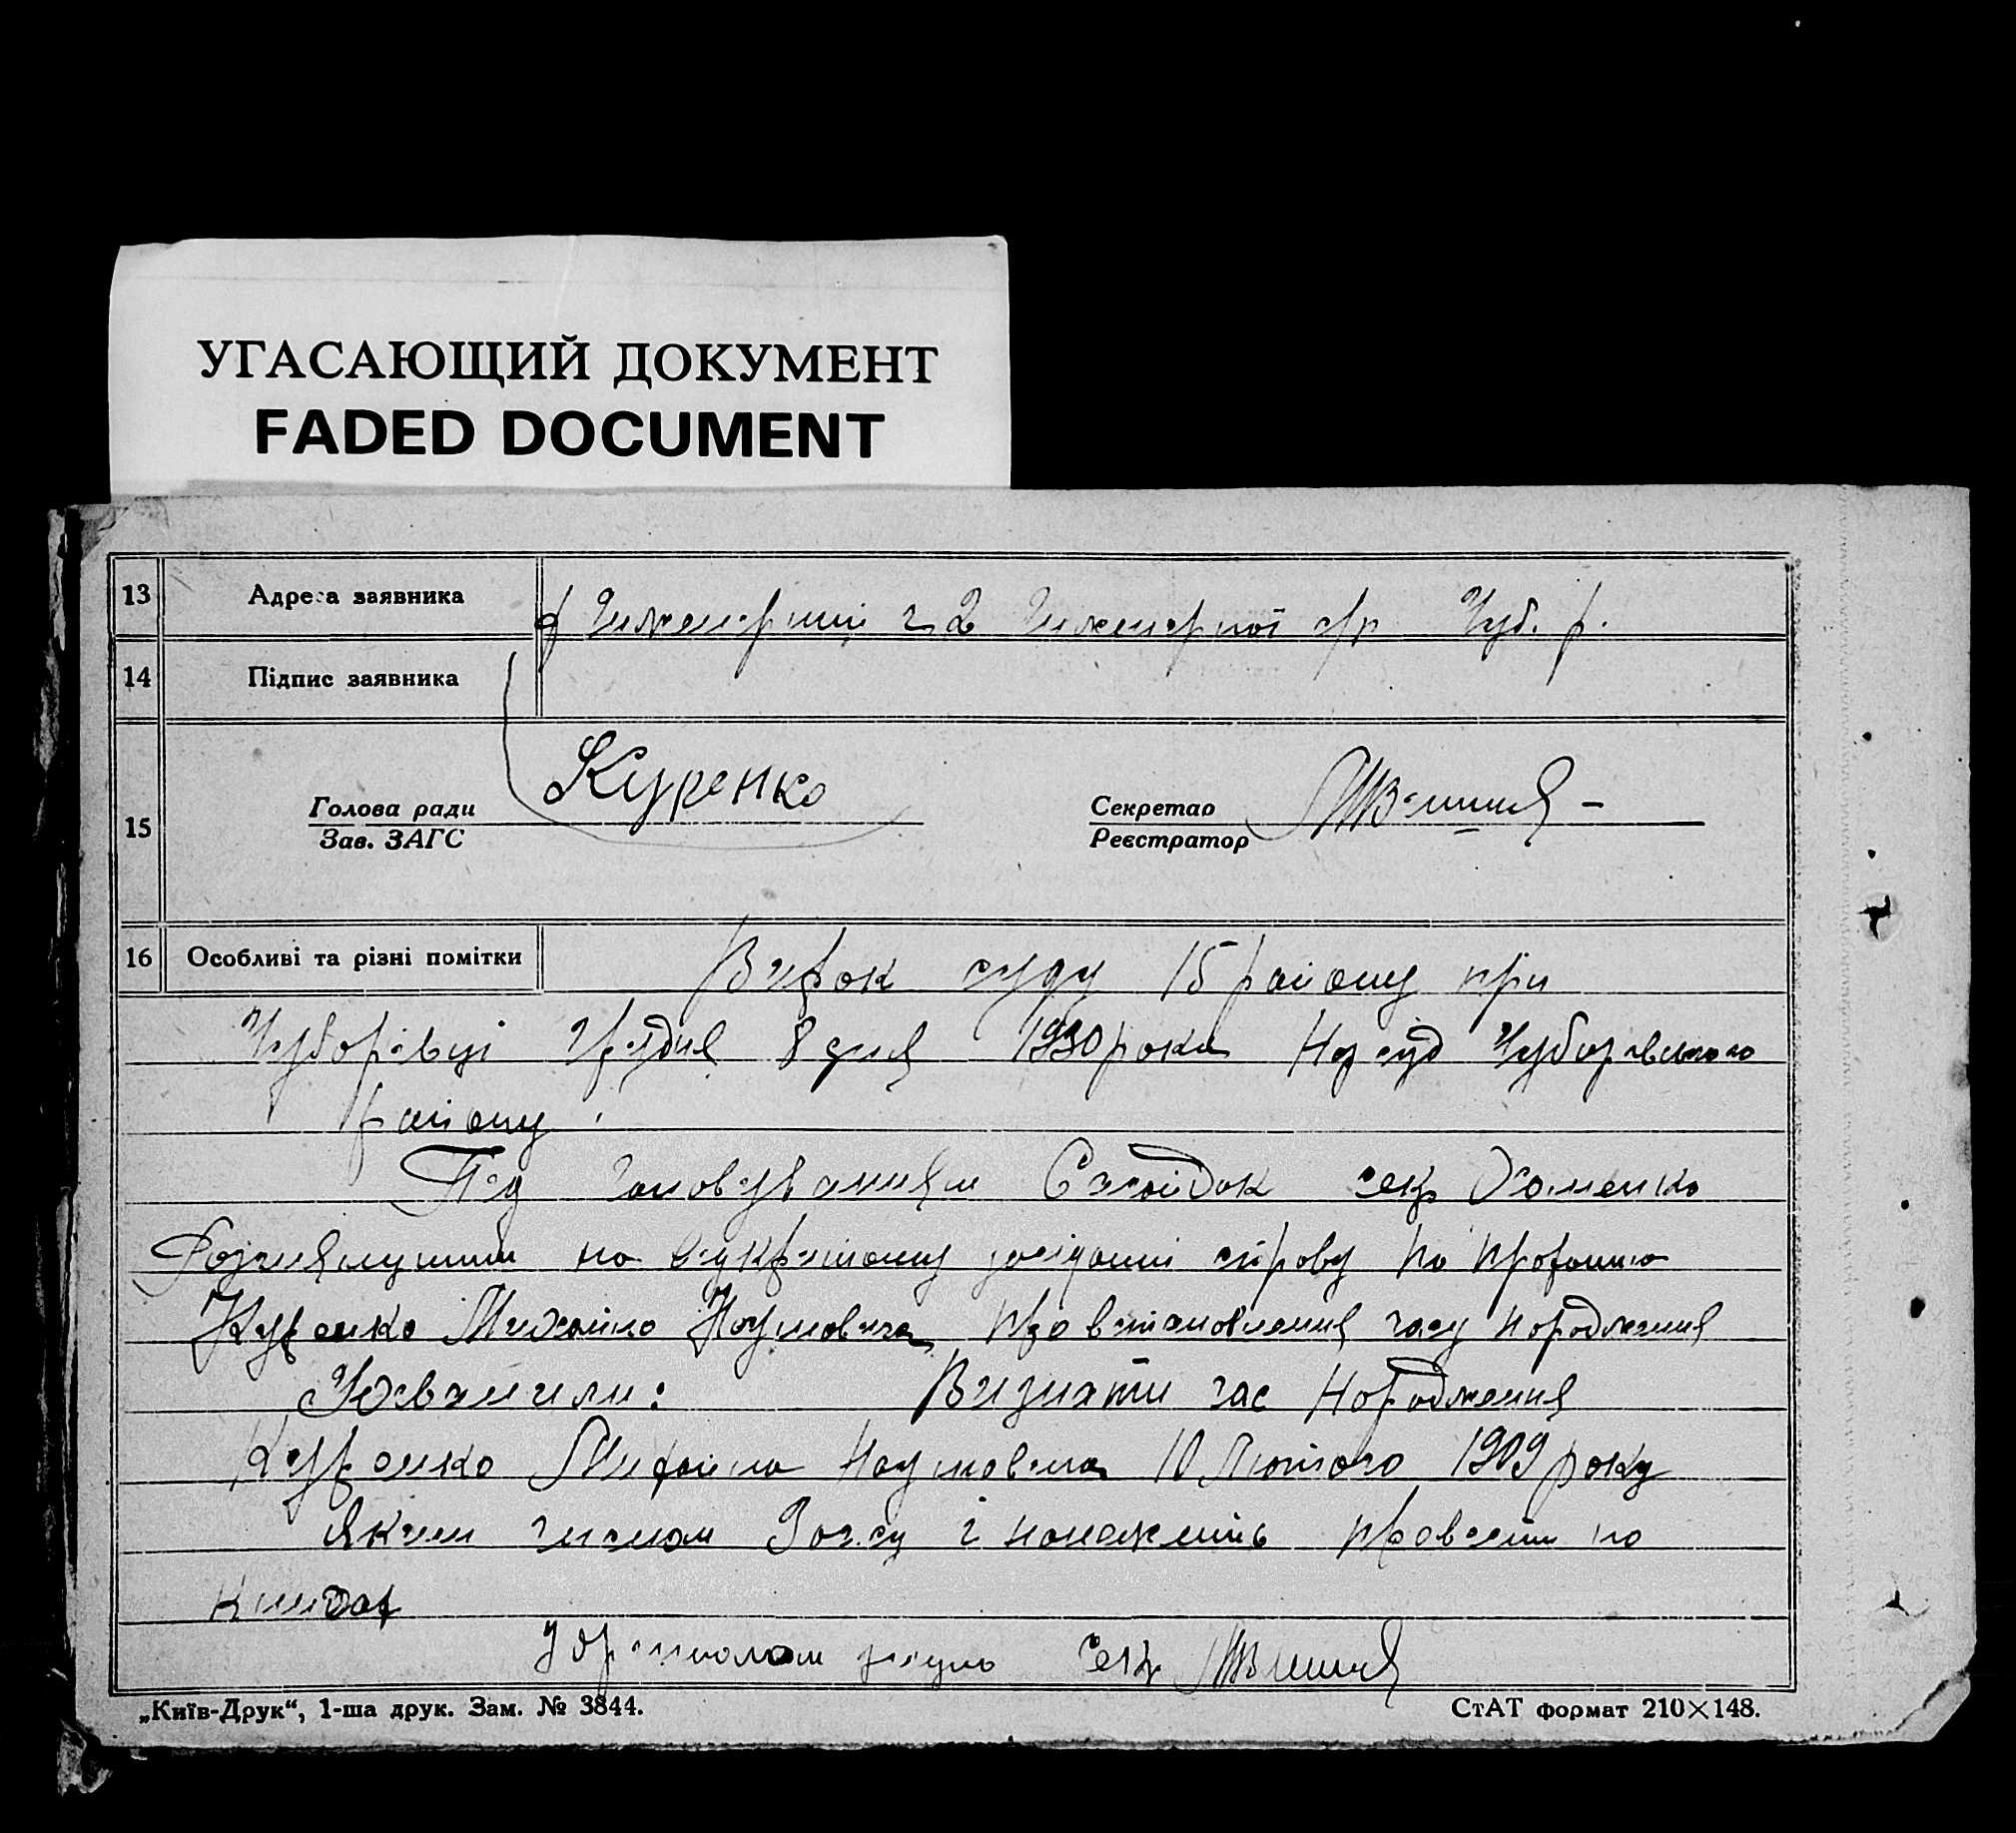 УГАСАЮЩИЙ ДОКУМЕНТ
FADED DOCUMENT
13 Адреса заявника
14 Підпис заявника
15 Голова ради Куренко Секретар
Зав. ЗАГС Реєстратор
16 Особливі та різні помітки Вирок суду 15 району при
Чубарівці Грудня 8 дня 1930 року Нарсуд Чубарівського
району
Під головуванням сек Хоменко
Розглянувши на відкритому засіданні справу по проханню
Куренко Михайло Наумовича про встановлення часу народження
Ухвалили: Визнати час народження
Куренко Михайла Наумовича 10 Лютого 1909 року
яким числом Загсу і належить провести по
книгах
З оригіналом згідно Секр
„Київ-Друк“, 1-ша друк. Зам. № 3844. СтАТ формат 210×148.